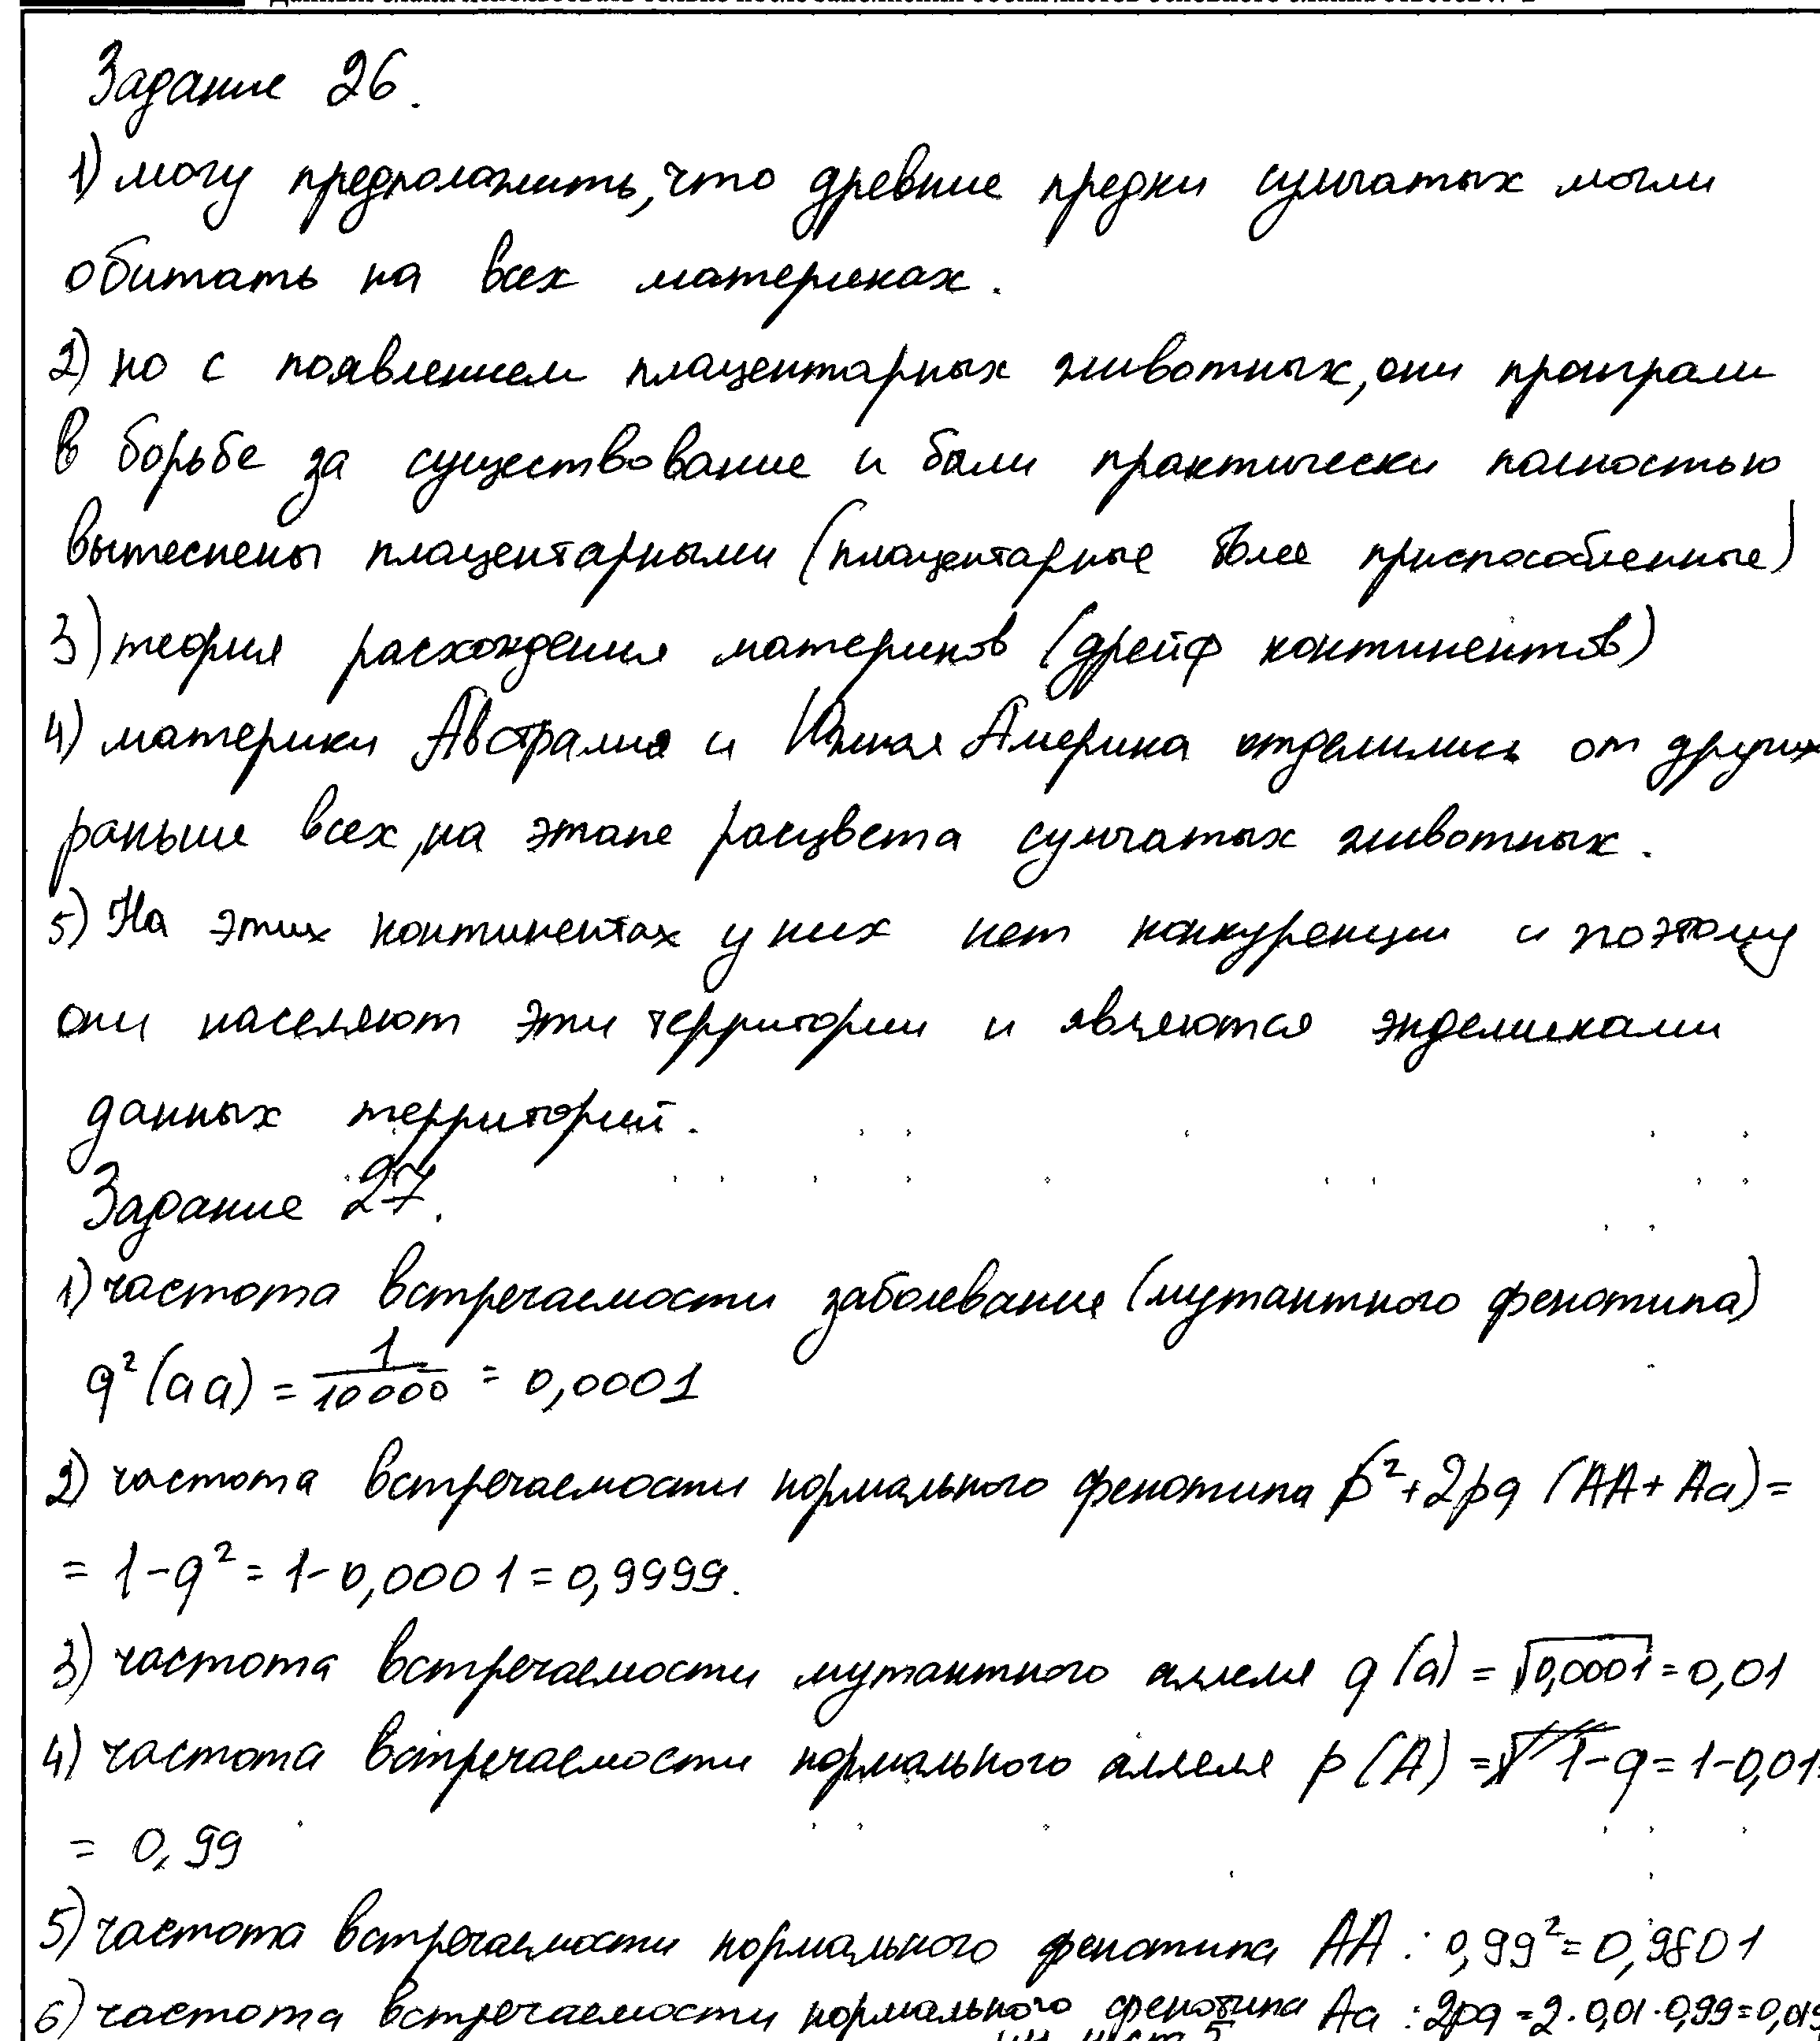 Задание 26.
1) могу предположить, что древние предки сумчатых могли
обитать на всех материках.
2) но с появлением плацентарных животных, они проиграли
в борьбе за существование и были практически полностью
вытеснены плацентарными (плацентарные более приспособленные)
3) теория расхождения материков (дрейф континентов)
4) материки Австралия и Южная Америка отделились от других
раньше всех, на этапе расцвета сумчатых животных.
5) На этих континентах у них нет конкуренции и поэтому
они населяют эти территории и являются эндемиками
данных территорий.
Задание 27.
1) частота встречаемости заболевание (мутантного фенотипа)
q²(aa) = 1/10000 = 0,0001
2) частота встречаемости нормального фенотипа p²+2pq (AA+Aa) =
= 1-q² = 1-0,0001 = 0,9999.
3) частота встречаемости мутантного аллеля q(a) = √0,0001 = 0,01
4) частота встречаемости нормального аллеля p(A) = 1-q = 1-0,01=
= 0,99
5) частота встречаемости нормального фенотипа AA: 0,99² = 0,9801
6) частота встречаемости нормального фенотипа Aa: 2pq = 2·0,01·0,99 = 0,019